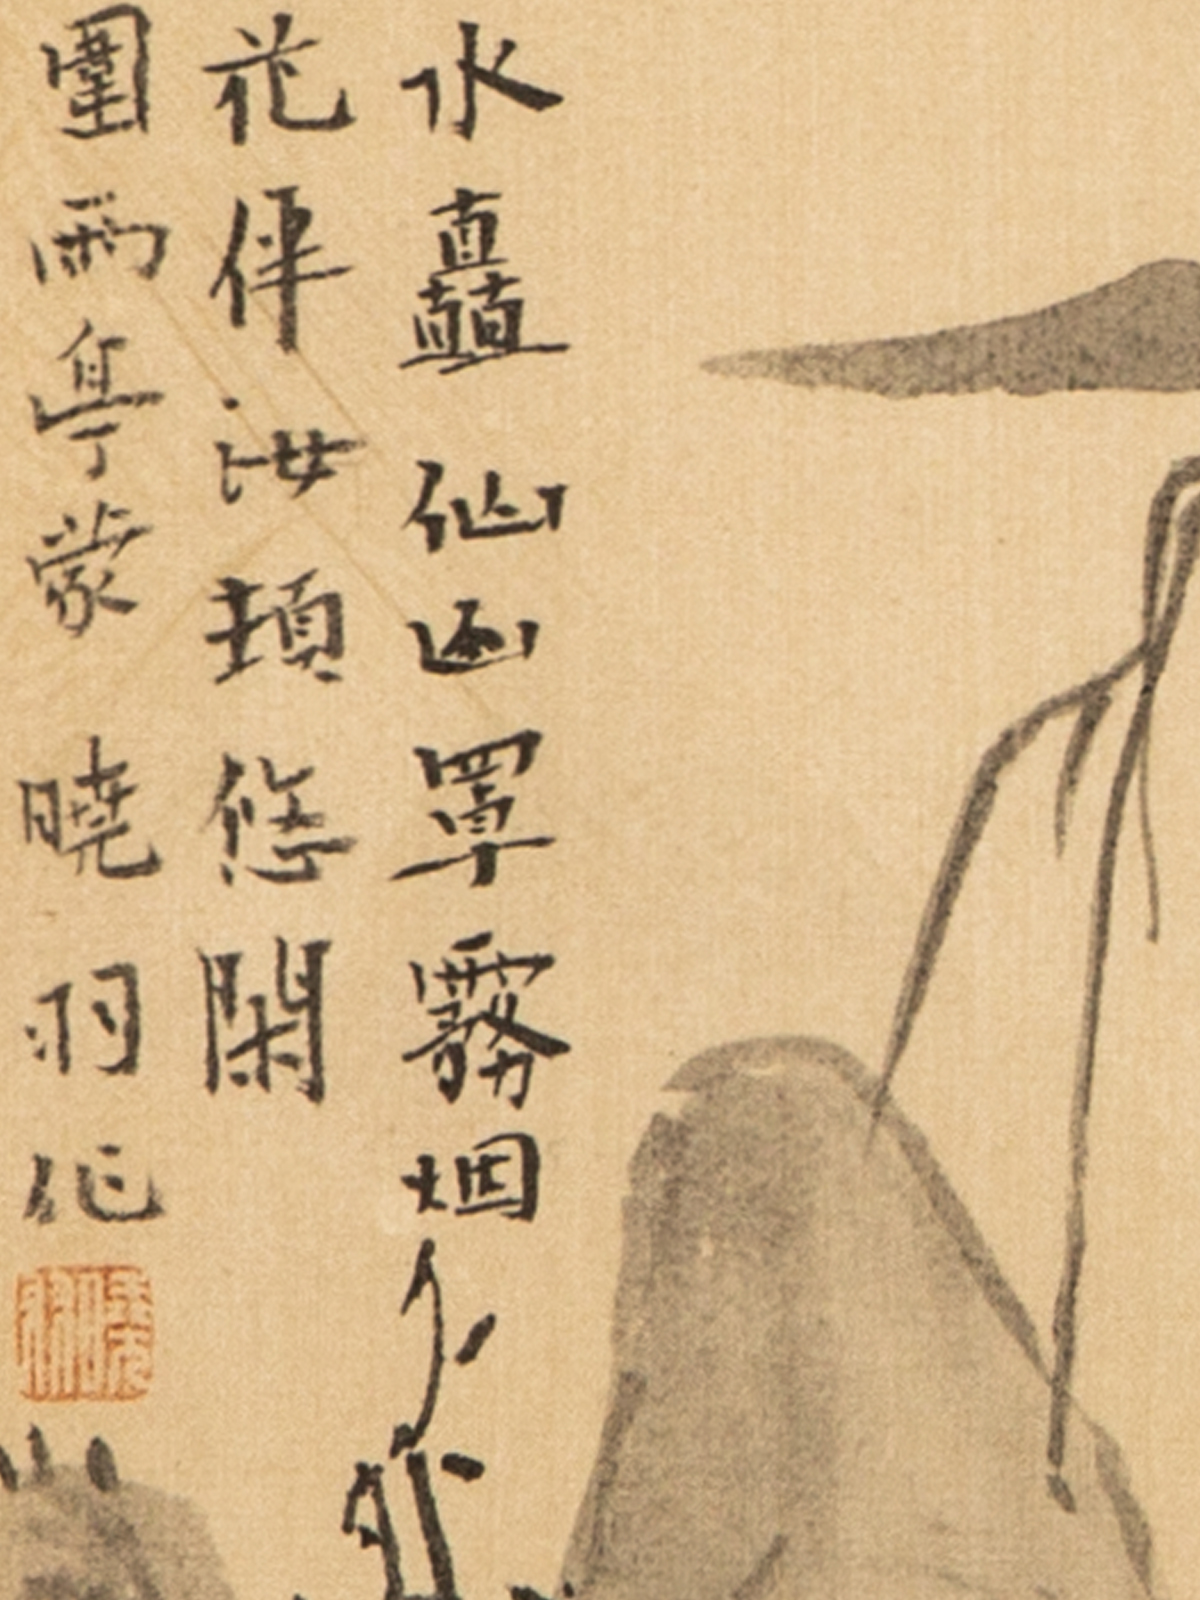 水矗仙罩霧烟
花伴汝悠閑
圍雨亭蒙 曉羽作